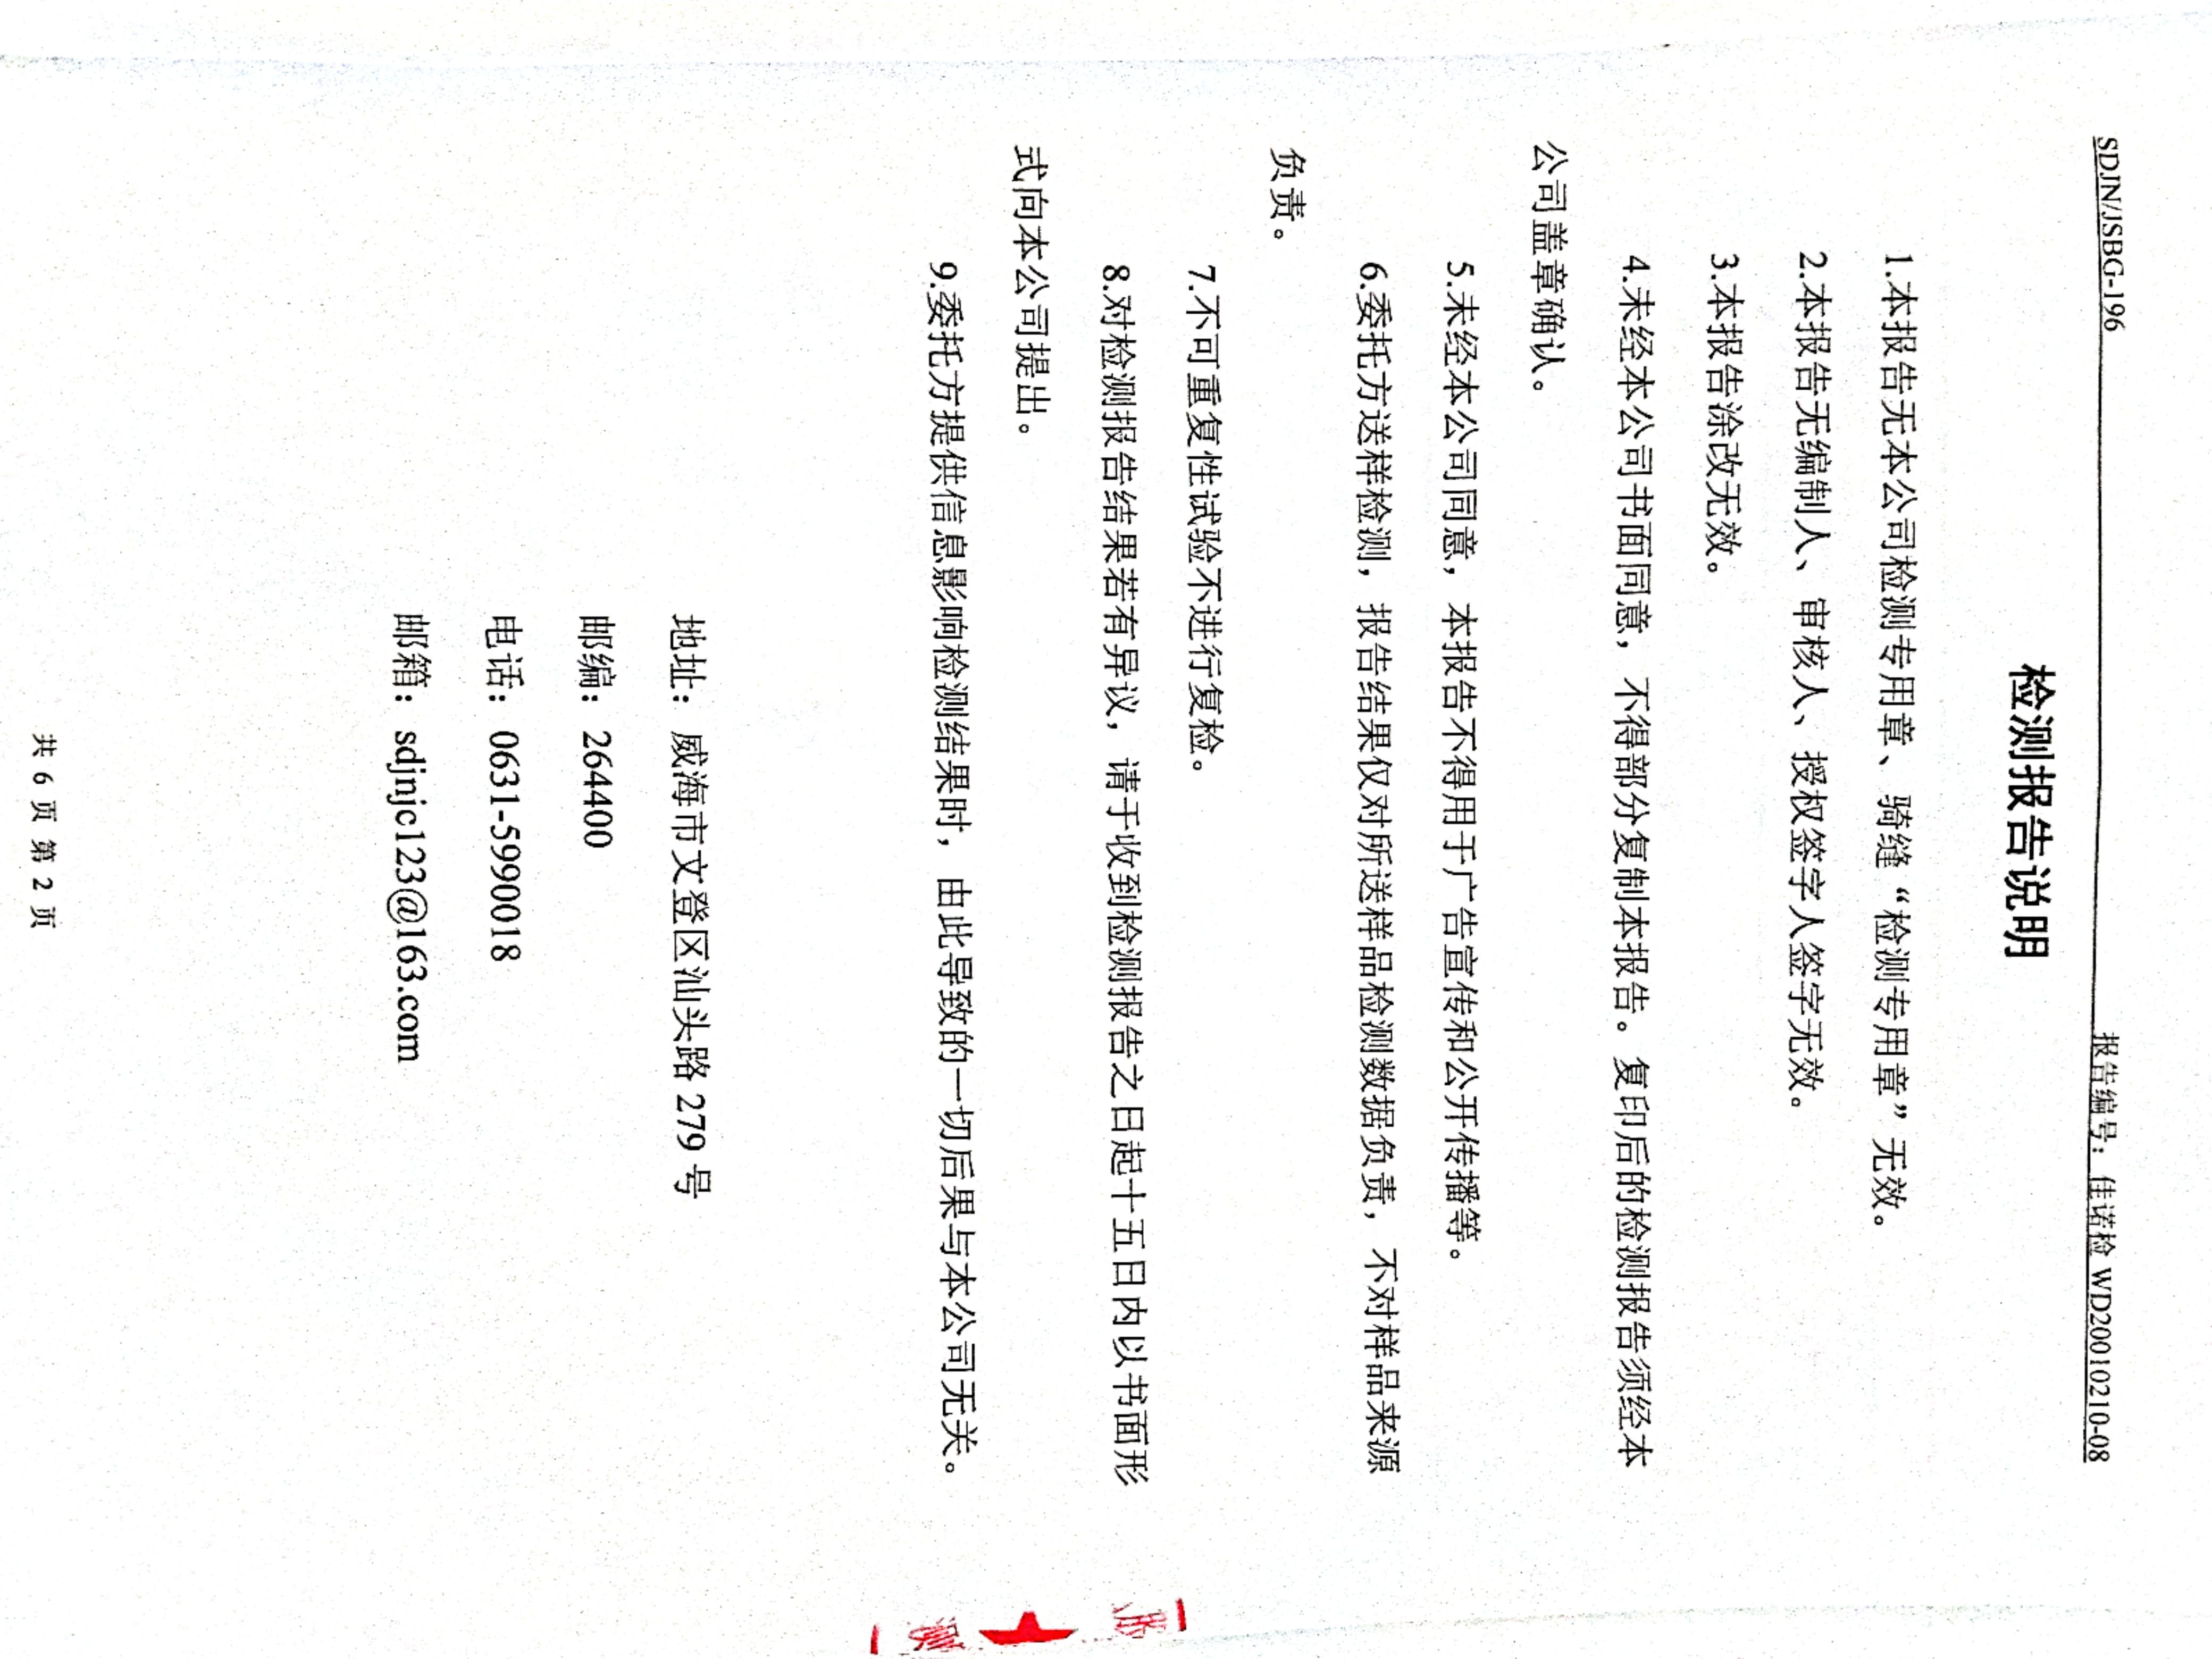 SDJN/JSBG-196 报告编号：佳诺检 WD20010210-08
检测报告说明
1.本报告无本公司检测专用章、骑缝“检测专用章”无效。
2.本报告无编制人、审核人、授权签字人签字无效。
3.本报告涂改无效。
4.未经本公司书面同意，不得部分复制本报告。复印后的检测报告须经本
公司盖章确认。
5.未经本公司同意，本报告不得用于广告宣传和公开传播等。
6.委托方送样检测，报告结果仅对所送样品检测数据负责，不对样品来源
负责。
7.不可重复性试验不进行复检。
8.对检测报告结果若有异议，请于收到检测报告之日起十五日内以书面形
式向本公司提出。
9.委托方提供信息影响检测结果时，由此导致的一切后果与本公司无关。
地址：威海市文登区汕头路 279 号
邮编：264400
电话：0631-5990018
邮箱：sdjnjc123@163.com
共 6 页 第 2 页